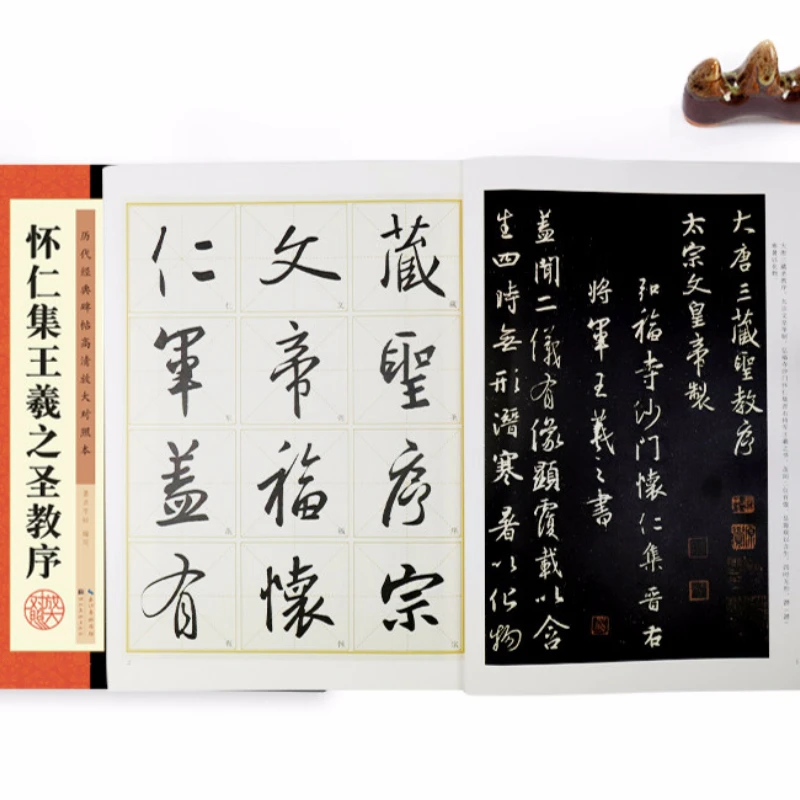 怀仁集王羲之圣教序
历代经典碑帖高清放大对照本
藏聖序宗
文帝福懷
仁軍盖有
大唐三藏聖教序
太宗文皇帝製
弘福寺沙門懷仁集晉右
将軍王羲之書
盖聞二儀有像顯覆載以含
生四時無形潛寒暑以化物